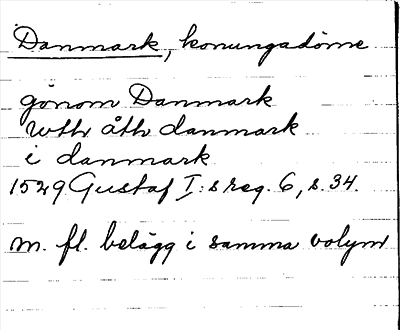 Danmark, konungadöme
gönom Danmark
wthr åthr danmark
i danmark
1529 Gustaf I:s reg. 6, s. 34.
m. fl. belägg i samma volym